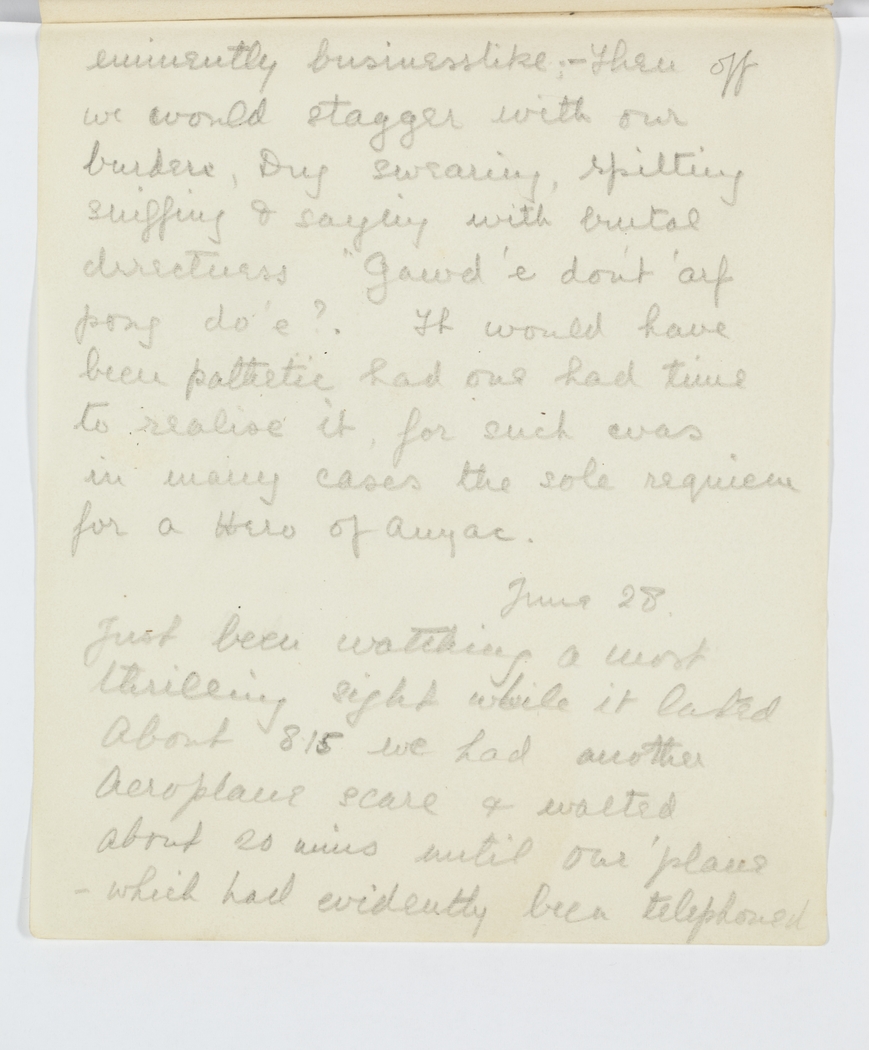 eminently businesslike;- Then off
we would stagger with our
burden, Dug swearing, spitting
sniffing & saying with brutal
directness "Gawd 'e don't 'arf
pong do 'e?. It would have
been pathetic had one had time
to realise it, for such was
in many cases the sole requiem
for a Hero of Anzac.
June 28.
Just been watching a most
thrilling sight while it lasted
About 8.15 we had another
Aeroplane scare & waited
about 20 mins until our 'plane
- which had evidently been telephoned